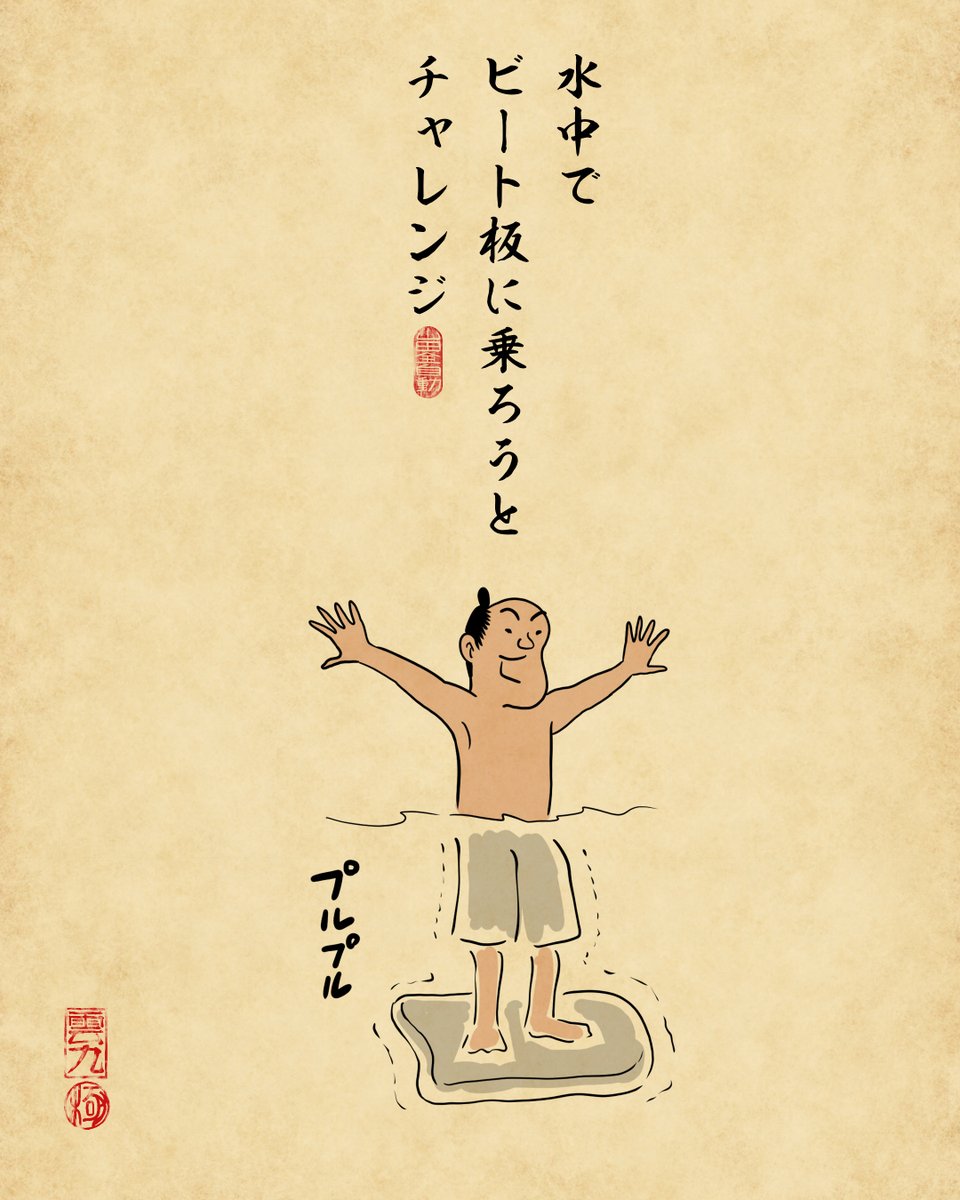 水中で
ビート板に乗ろうと
チャレンジ
プルプル